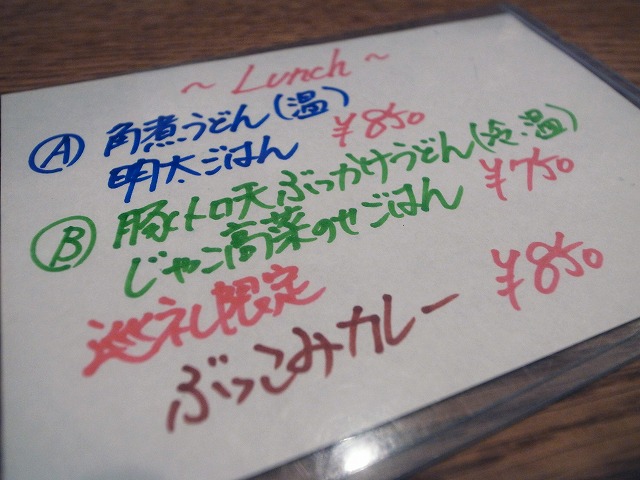 ～ Lunch ～
Ⓐ 角煮うどん(温)
明太ごはん ¥850
Ⓑ 豚トロ天ぶっかけうどん(冷・温)
じゃこ高菜のせごはん ¥750
巡礼限定
ぶっこみカレー ¥850